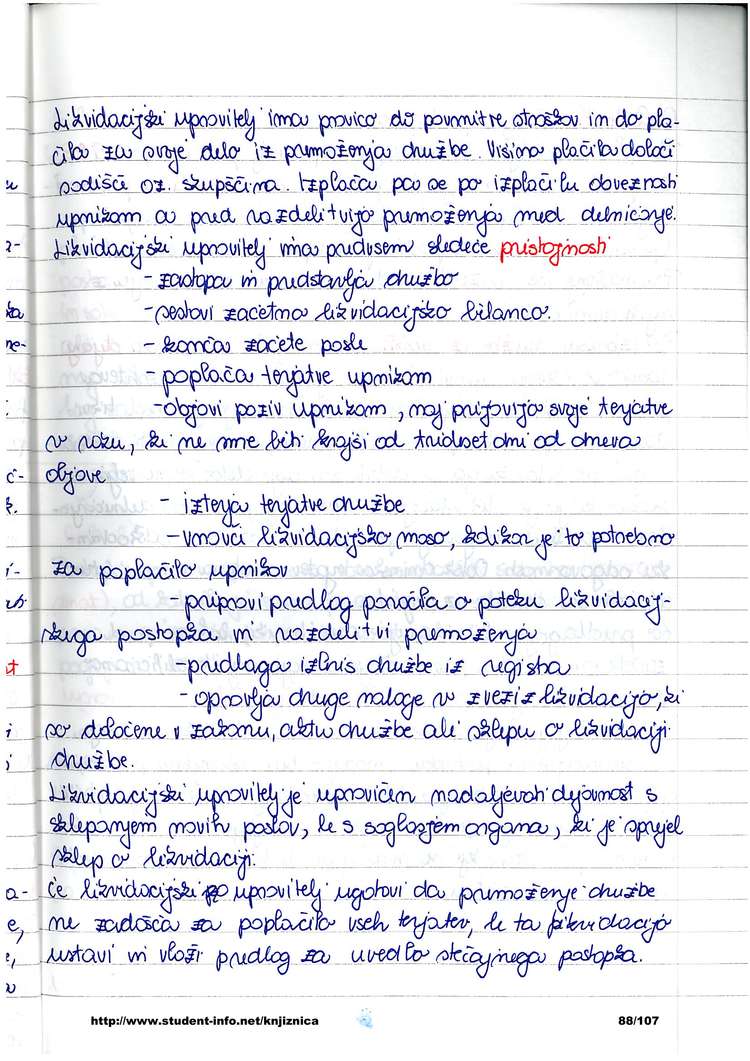 Likvidacijski upravitelj ima pravico do povrnitve stroškov in do pla-
čila za svoje delo iz premoženja družbe. Višino plačila določi
sodišče oz. skupščina. Izplača pa se po izplačilu obveznosti
upnikom a pred razdelitvijo premoženja med delničarje.
Likvidacijski upravitelj ima predvsem sledeče pristojnosti
- zastopa in predstavlja družbo
- sestavi začetno likvidacijsko bilanco.
- konča začete posle
- poplača terjatve upnikom
- objavi poziv upnikom, naj prijavijo svoje terjatve
v roku, ki ne sme biti krajši od trideset dni od dneva
objave
- izterja terjatve družbe
- vnovči likvidacijsko maso, kolikor je to potrebno
za poplačilo upnikov
- pripravi predlog poročila o poteku likvidacij-
skega postopka in razdelitvi premoženja
- predlaga izbris družbe iz registra
- opravlja druge naloge v zvezi z likvidacijo, ki
so določene v zakonu, aktu družbe ali sklepu o likvidaciji
družbe.
Likvidacijski upravitelj je upravičen nadaljevati dejavnost s
sklepanjem novih poslov, le s soglasjem organa, ki je sprejel
sklep o likvidaciji.
Če likvidacijski upravitelj ugotovi da premoženje družbe
ne zadošča za poplačilo vseh terjatev, le ta likvidacijo
ustavi in vloži predlog za uvedbo stečajnega postopka.
http://www.student-info.net/knjiznica
88/107